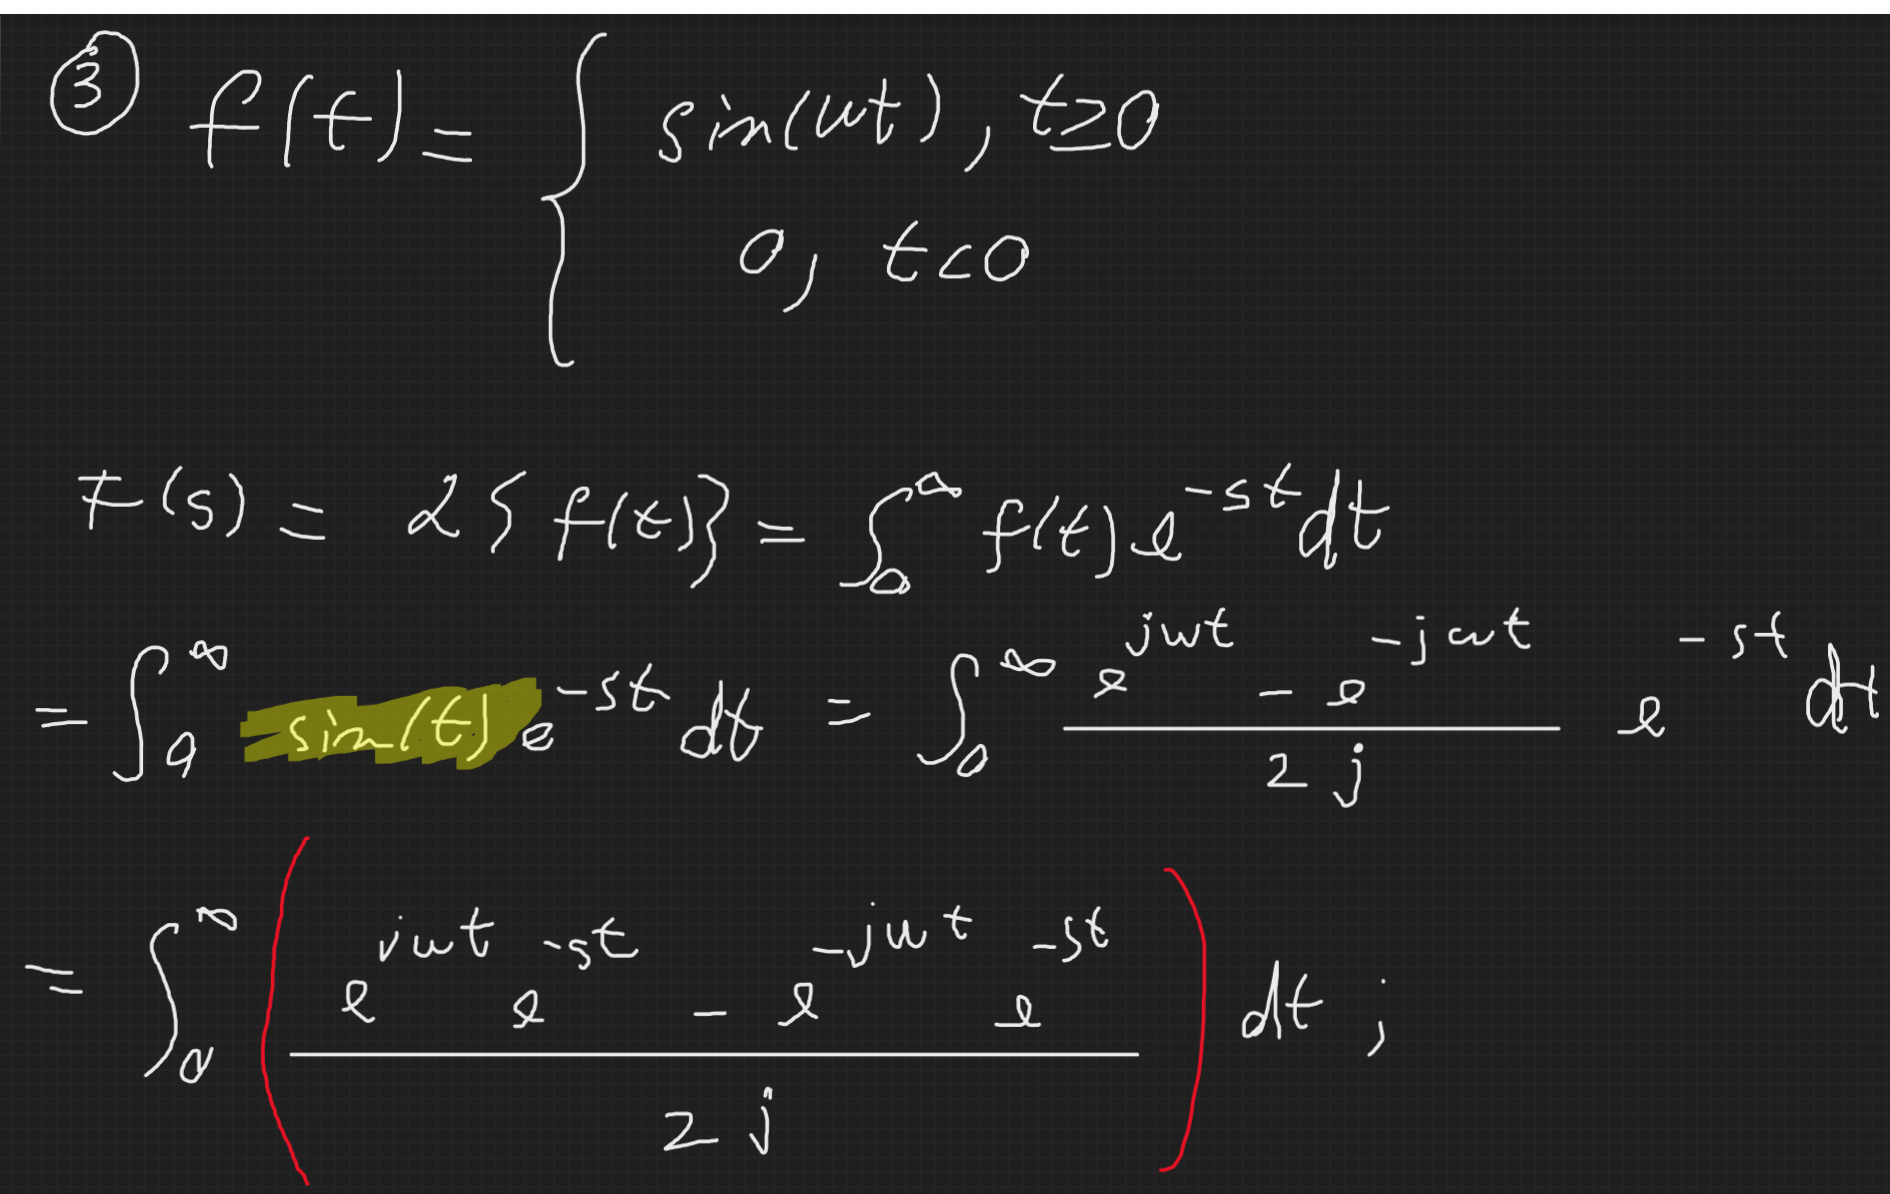 ③ f(t) = { sin(ωt), t≥0
0, t<0
F(s) = ℒ{f(t)} = ∫₀^∞ f(t) e^{-st} dt
= ∫₀^∞ sin(t) e^{-st} dt = ∫₀^∞ (e^{jωt} - e^{-jωt})/(2j) e^{-st} dt
= ∫₀^∞ ((e^{jωt} e^{-st} - e^{-jωt} e^{-st})/(2j)) dt ;